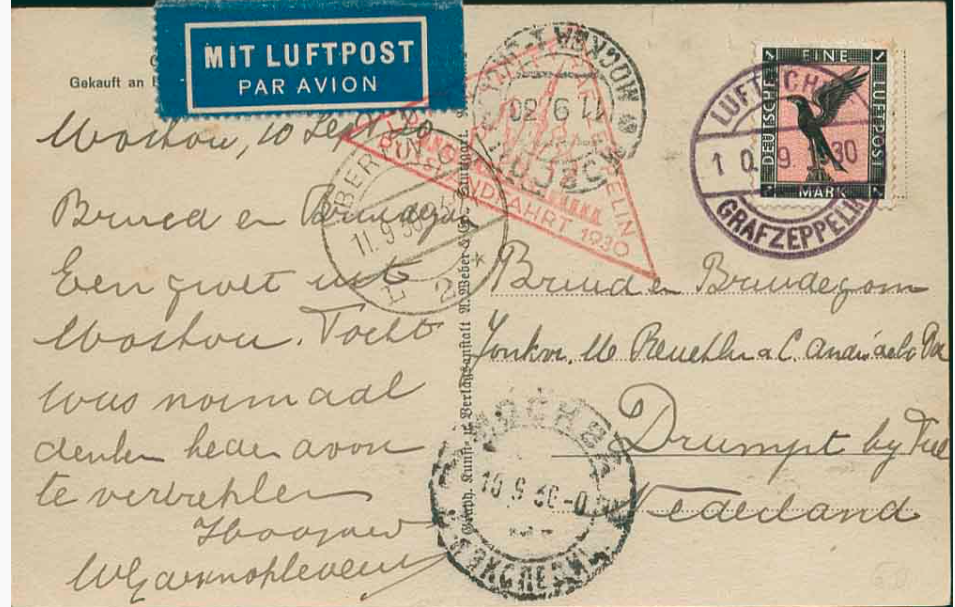 MIT LUFTPOST
PAR AVION
Gekauft an
Moskou, 10 Sept. 30
Bruid en Bruidegom
Een groet uit
Moskou. Tocht
was normaal
denken heden avond
te vertrekken
Bruid en Bruidegom
Jonkvr.
Drumpt by Tiel
Nederland
EINE
DEUTSCHE
LUFTPOST
1 MARK 1
LUFTSCHIFF
10.9.1930
GRAF ZEPPELIN
ZEPPELIN
RUSSLANDFAHRT 1930
BERLIN C
11.9.30
L 2 *
МОСКВА
11 9 30
МОСКВА
10 9 30
Graph. Kunst- u. Verlagsanstalt A. Weber & Co. Stuttgart.